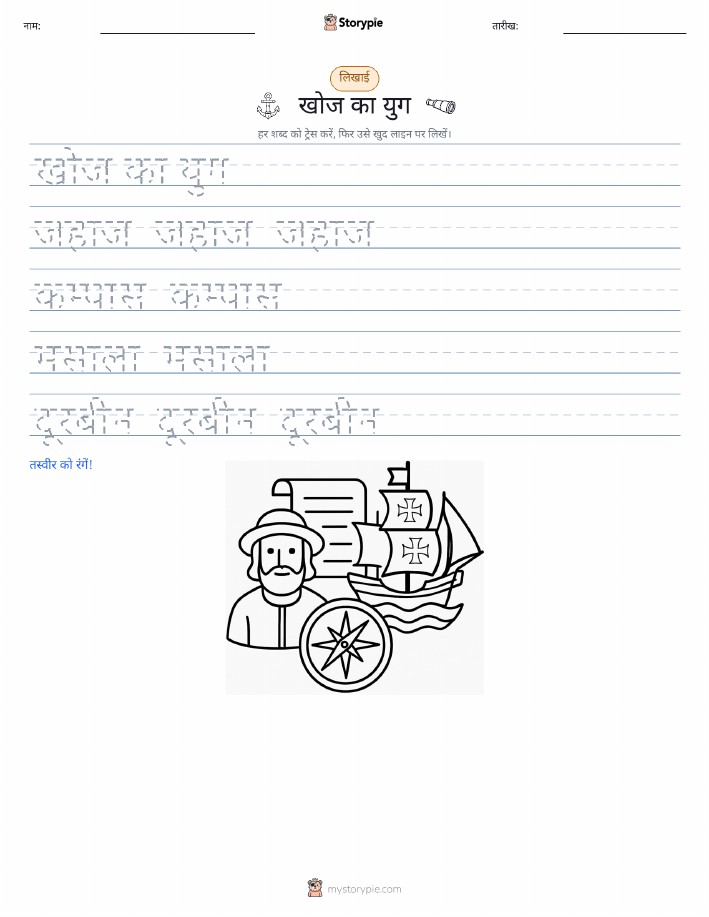 नाम:
Storypie
तारीख:
लिखाई
खोज का युग
हर शब्द को ट्रेस करें, फिर उसे खुद लाइन पर लिखें।
खोज का युग
जहाज जहाज जहाज
कम्पास कम्पास
मसाला मसाला
दूरबीन दूरबीन दूरबीन
तस्वीर को रंगें!
mystorypie.com